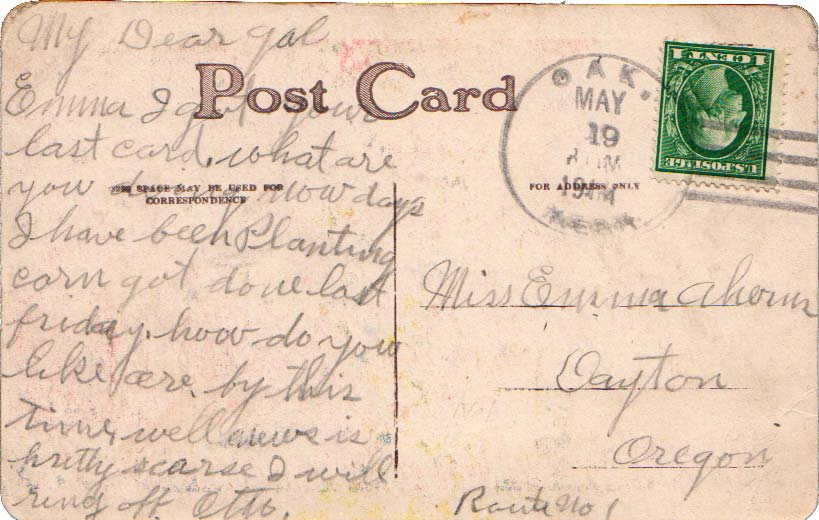 My Dear gal
Post Card
Emma I got your
last card. what are
you now days
THIS SPACE MAY BE USED FOR
CORRESPONDENCE
I have been Planting
corn got done last
friday. how do you
like ore. by this
time, well news is
pretty scarse I will
ring off. Otto.
FOR ADDRESS ONLY
OAK,
MAY
19
M
NEBR.
1 CENT 1
U.S. POSTAGE
Miss Emma Ahern
Dayton
Oregon
Route No 1